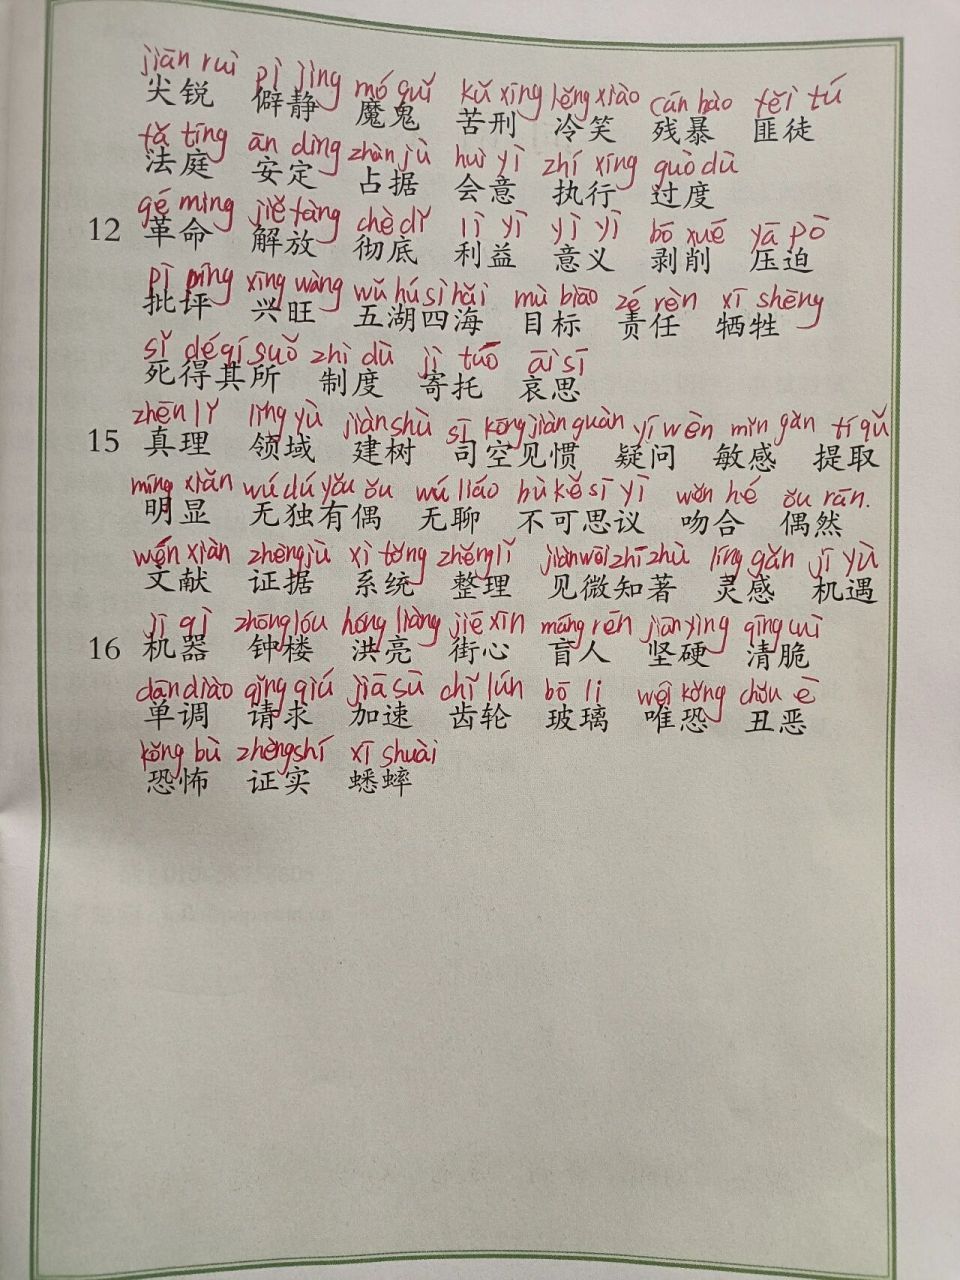 jiān ruì pì jìng mó guǐ kǔ xíng lěng xiào cán bào fěi tú
尖锐 僻静 魔鬼 苦刑 冷笑 残暴 匪徒
fǎ tíng ān dìng zhàn jù huì yì zhí xíng guò dù
法庭 安定 占据 会意 执行 过度
gé mìng jiě fàng chè dǐ lì yì yì yì bō xuē yā pò
12 革命 解放 彻底 利益 意义 剥削 压迫
pī píng xīng wàng wǔ hú sì hǎi mù biāo zé rèn xī shēng
批评 兴旺 五湖四海 目标 责任 牺牲
sǐ dé qí suǒ zhì dù jì tuō āi sī
死得其所 制度 寄托 哀思
zhēn lǐ lǐng yù jiàn shù sī kōng jiàn guàn yí wèn mǐn gǎn tí qǔ
15 真理 领域 建树 司空见惯 疑问 敏感 提取
míng xiǎn wú dú yǒu ǒu wú liáo bù kě sī yì wěn hé ǒu rán.
明显 无独有偶 无聊 不可思议 吻合 偶然
wén xiàn zhèng jù xì tǒng zhěng lǐ jiàn wēi zhī zhù líng gǎn jī yù
文献 证据 系统 整理 见微知著 灵感 机遇
jī qì zhōng lóu hóng liàng jiē xīn máng rén jiān yìng qīng cuì
16 机器 钟楼 洪亮 街心 盲人 坚硬 清脆
dān diào qǐng qiú jiā sù chǐ lún bō li wéi kǒng chǒu è
单调 请求 加速 齿轮 玻璃 唯恐 丑恶
kǒng bù zhèng shí xī shuài
恐怖 证实 蟋蟀